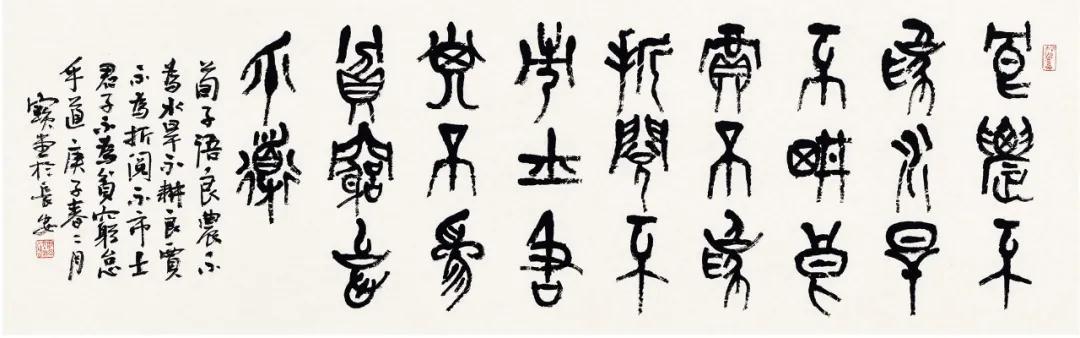 良農不
為水旱
不畊良
賈不為
折閱不
市士君
子不為
貧窮怠
乎道
荀子語良農不
為水旱不耕良賈
不為折閱不市士
君子不為貧窮怠
乎道庚子春二月
寶於長安